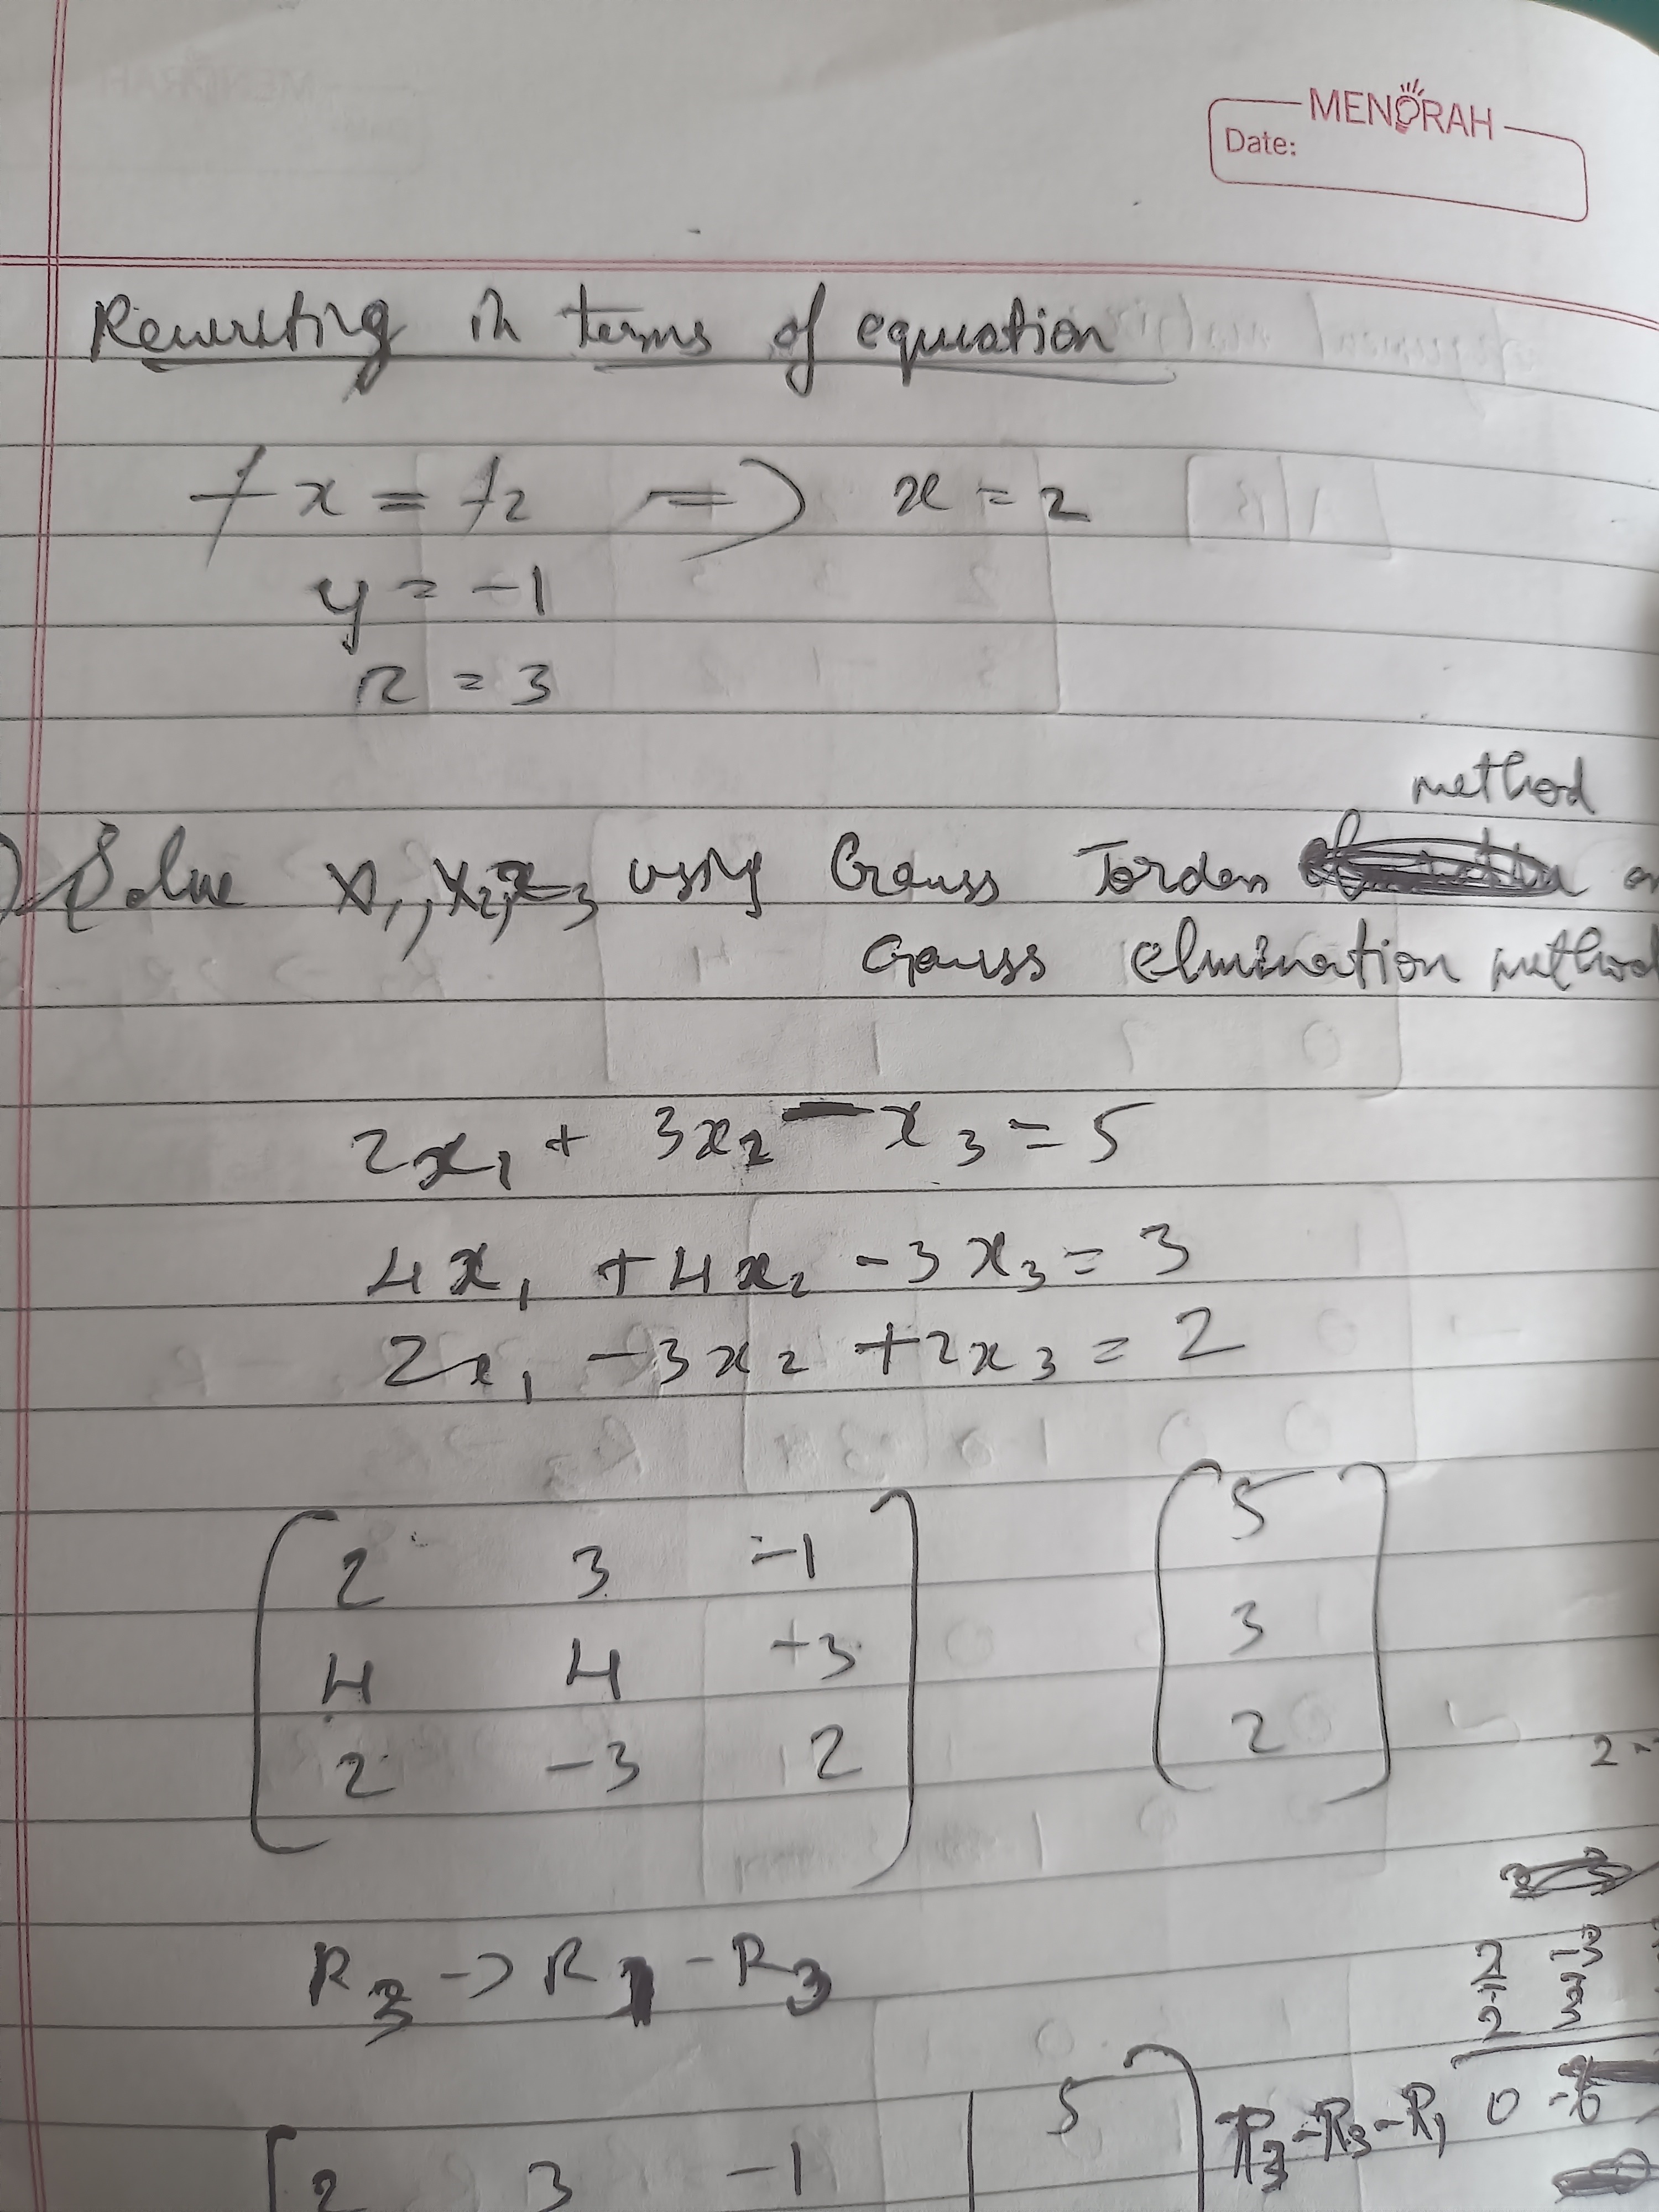 MENORAH
Date:
Rewriting in terms of equation
x = 2 => x = 2
y = -1
z = 3
Solve x1, x2, x3 using Gauss Jordan method
Gauss elmination method
2x1 + 3x2 - x3 = 5
4x1 + 4x2 - 3x3 = 3
2x1 - 3x2 + 2x3 = 2
2 3 -1 5
4 4 +3 3
2 -3 2 2
R3 -> R1 - R3
2 -3
2 3
0 -6
R3 - R3 - R1
5
2 3 -1